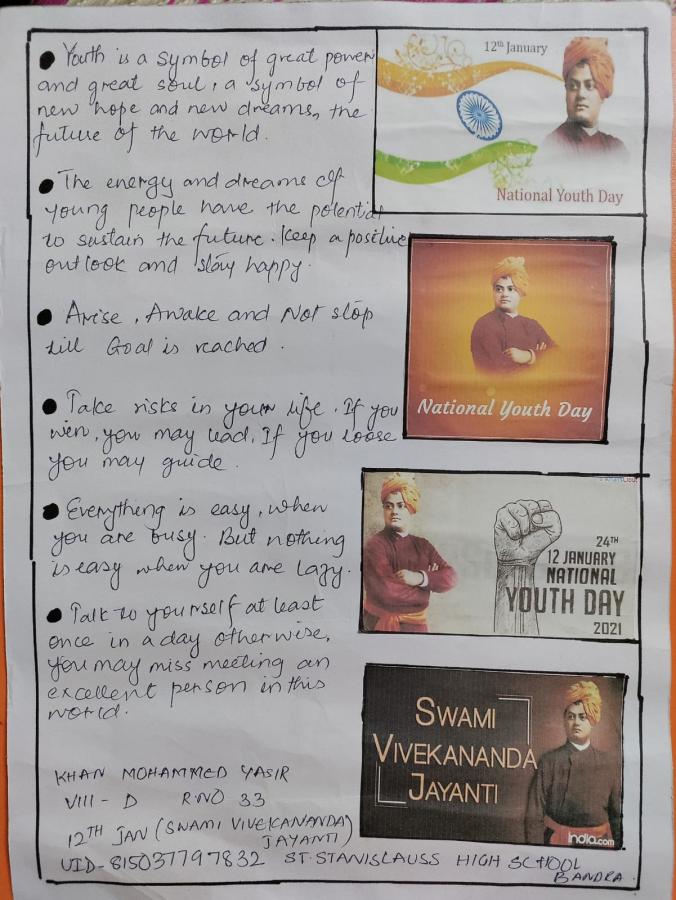 ● Youth is a symbol of great power
and great soul, a symbol of
new hope and new dreams, the
future of the world.
● The energy and dreams of
young people have the potential
to sustain the future. Keep a positive
outlook and stay happy.
● Arise, Awake and Not stop
till Goal is reached.
● Take risks in your life. If you
win, you may lead, If you loose
you may guide.
● Everything is easy, when
you are busy. But nothing
is easy when you are lazy.
● Talk to yourself at least
once in a day otherwise,
you may miss meeting an
excellent person in this
world.
KHAN MOHAMMED YASIR
VIII - D R.NO 33
12TH JAN (SWAMI VIVEKANANDA)
JAYANTI
UID-815037797832 ST. STANISLAUSS HIGH SCHOOL
BANDRA.
12th January
National Youth Day
National Youth Day
24TH
12 JANUARY
NATIONAL
YOUTH DAY
2021
SWAMI
VIVEKANANDA
JAYANTI
india.com